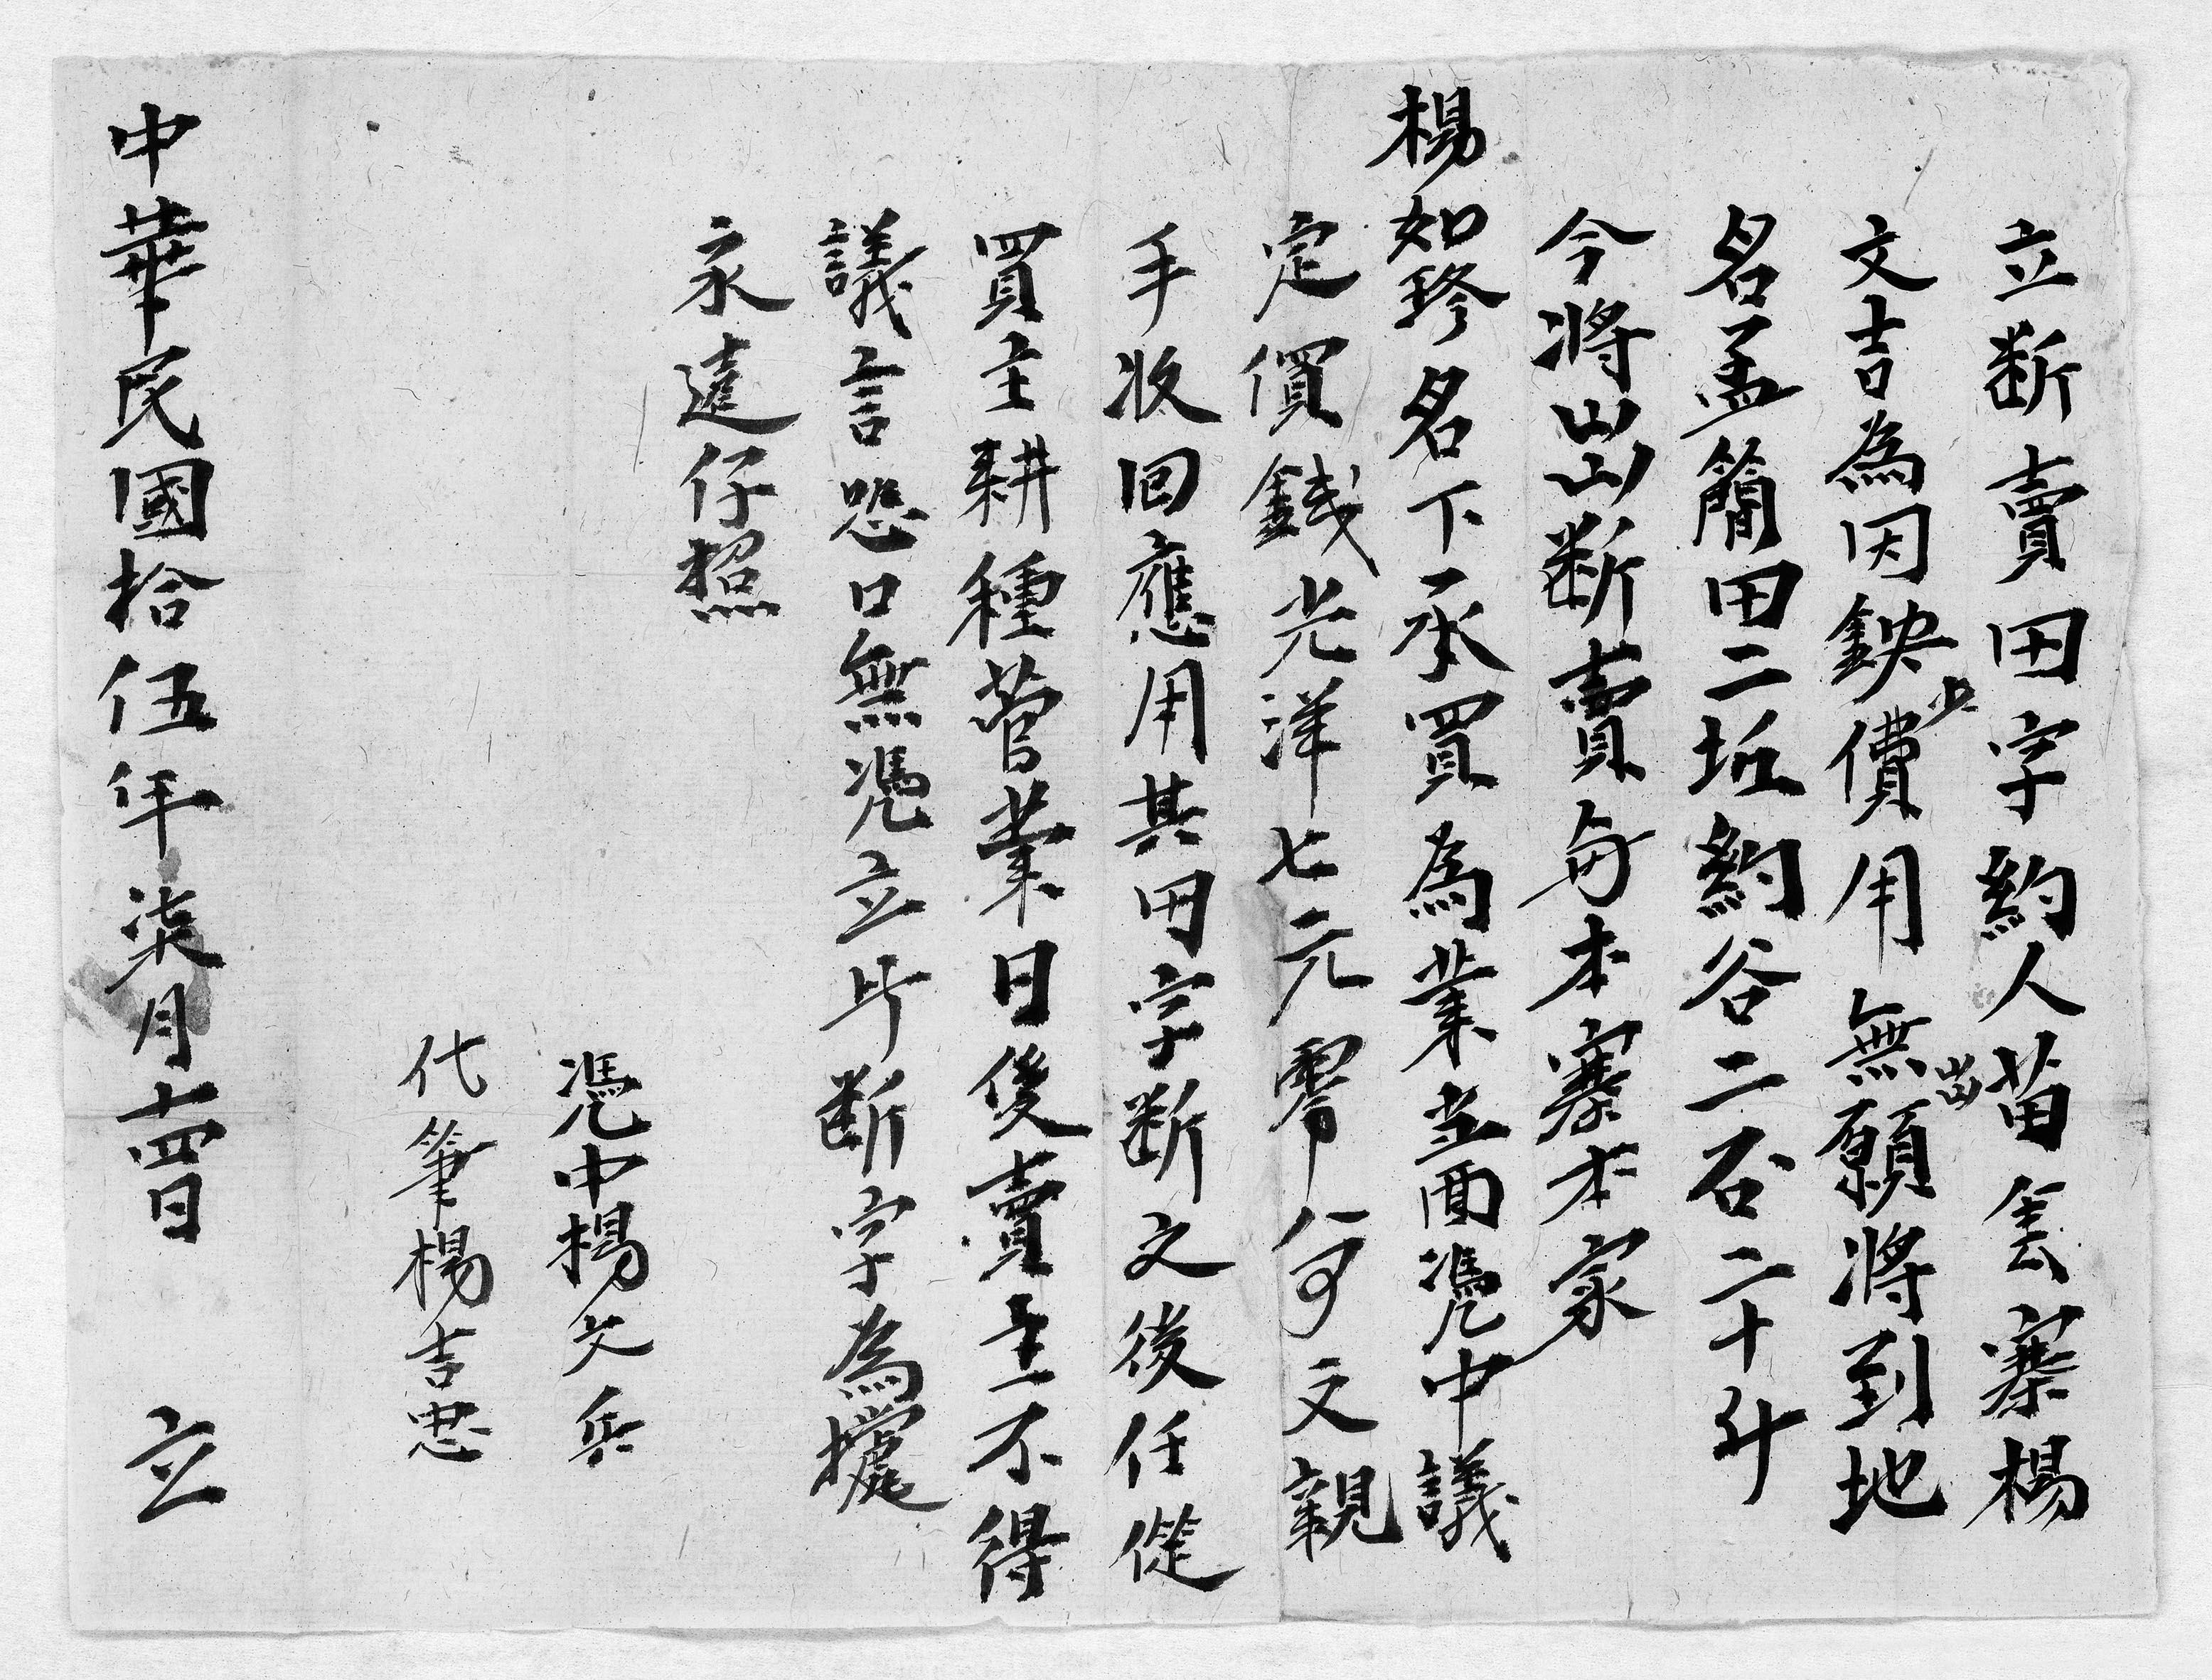 立断賣田字約人苗𩃬寨楊
文吉為因缺少費用無出願將到地
名孟簡田二坵約谷二石二十斗
今將出山断賣與本寨本家
楊如珍名下承買為業當面憑中議
定價錢光洋七元零八可文親
手收回應用其田字断文後任從
買主耕種菅業日後賣主不得
議言恐口無憑立此断字為據
永遠仔照
憑中楊文兵
代筆楊吉忠
中華民國拾伍年柒月十四日 立